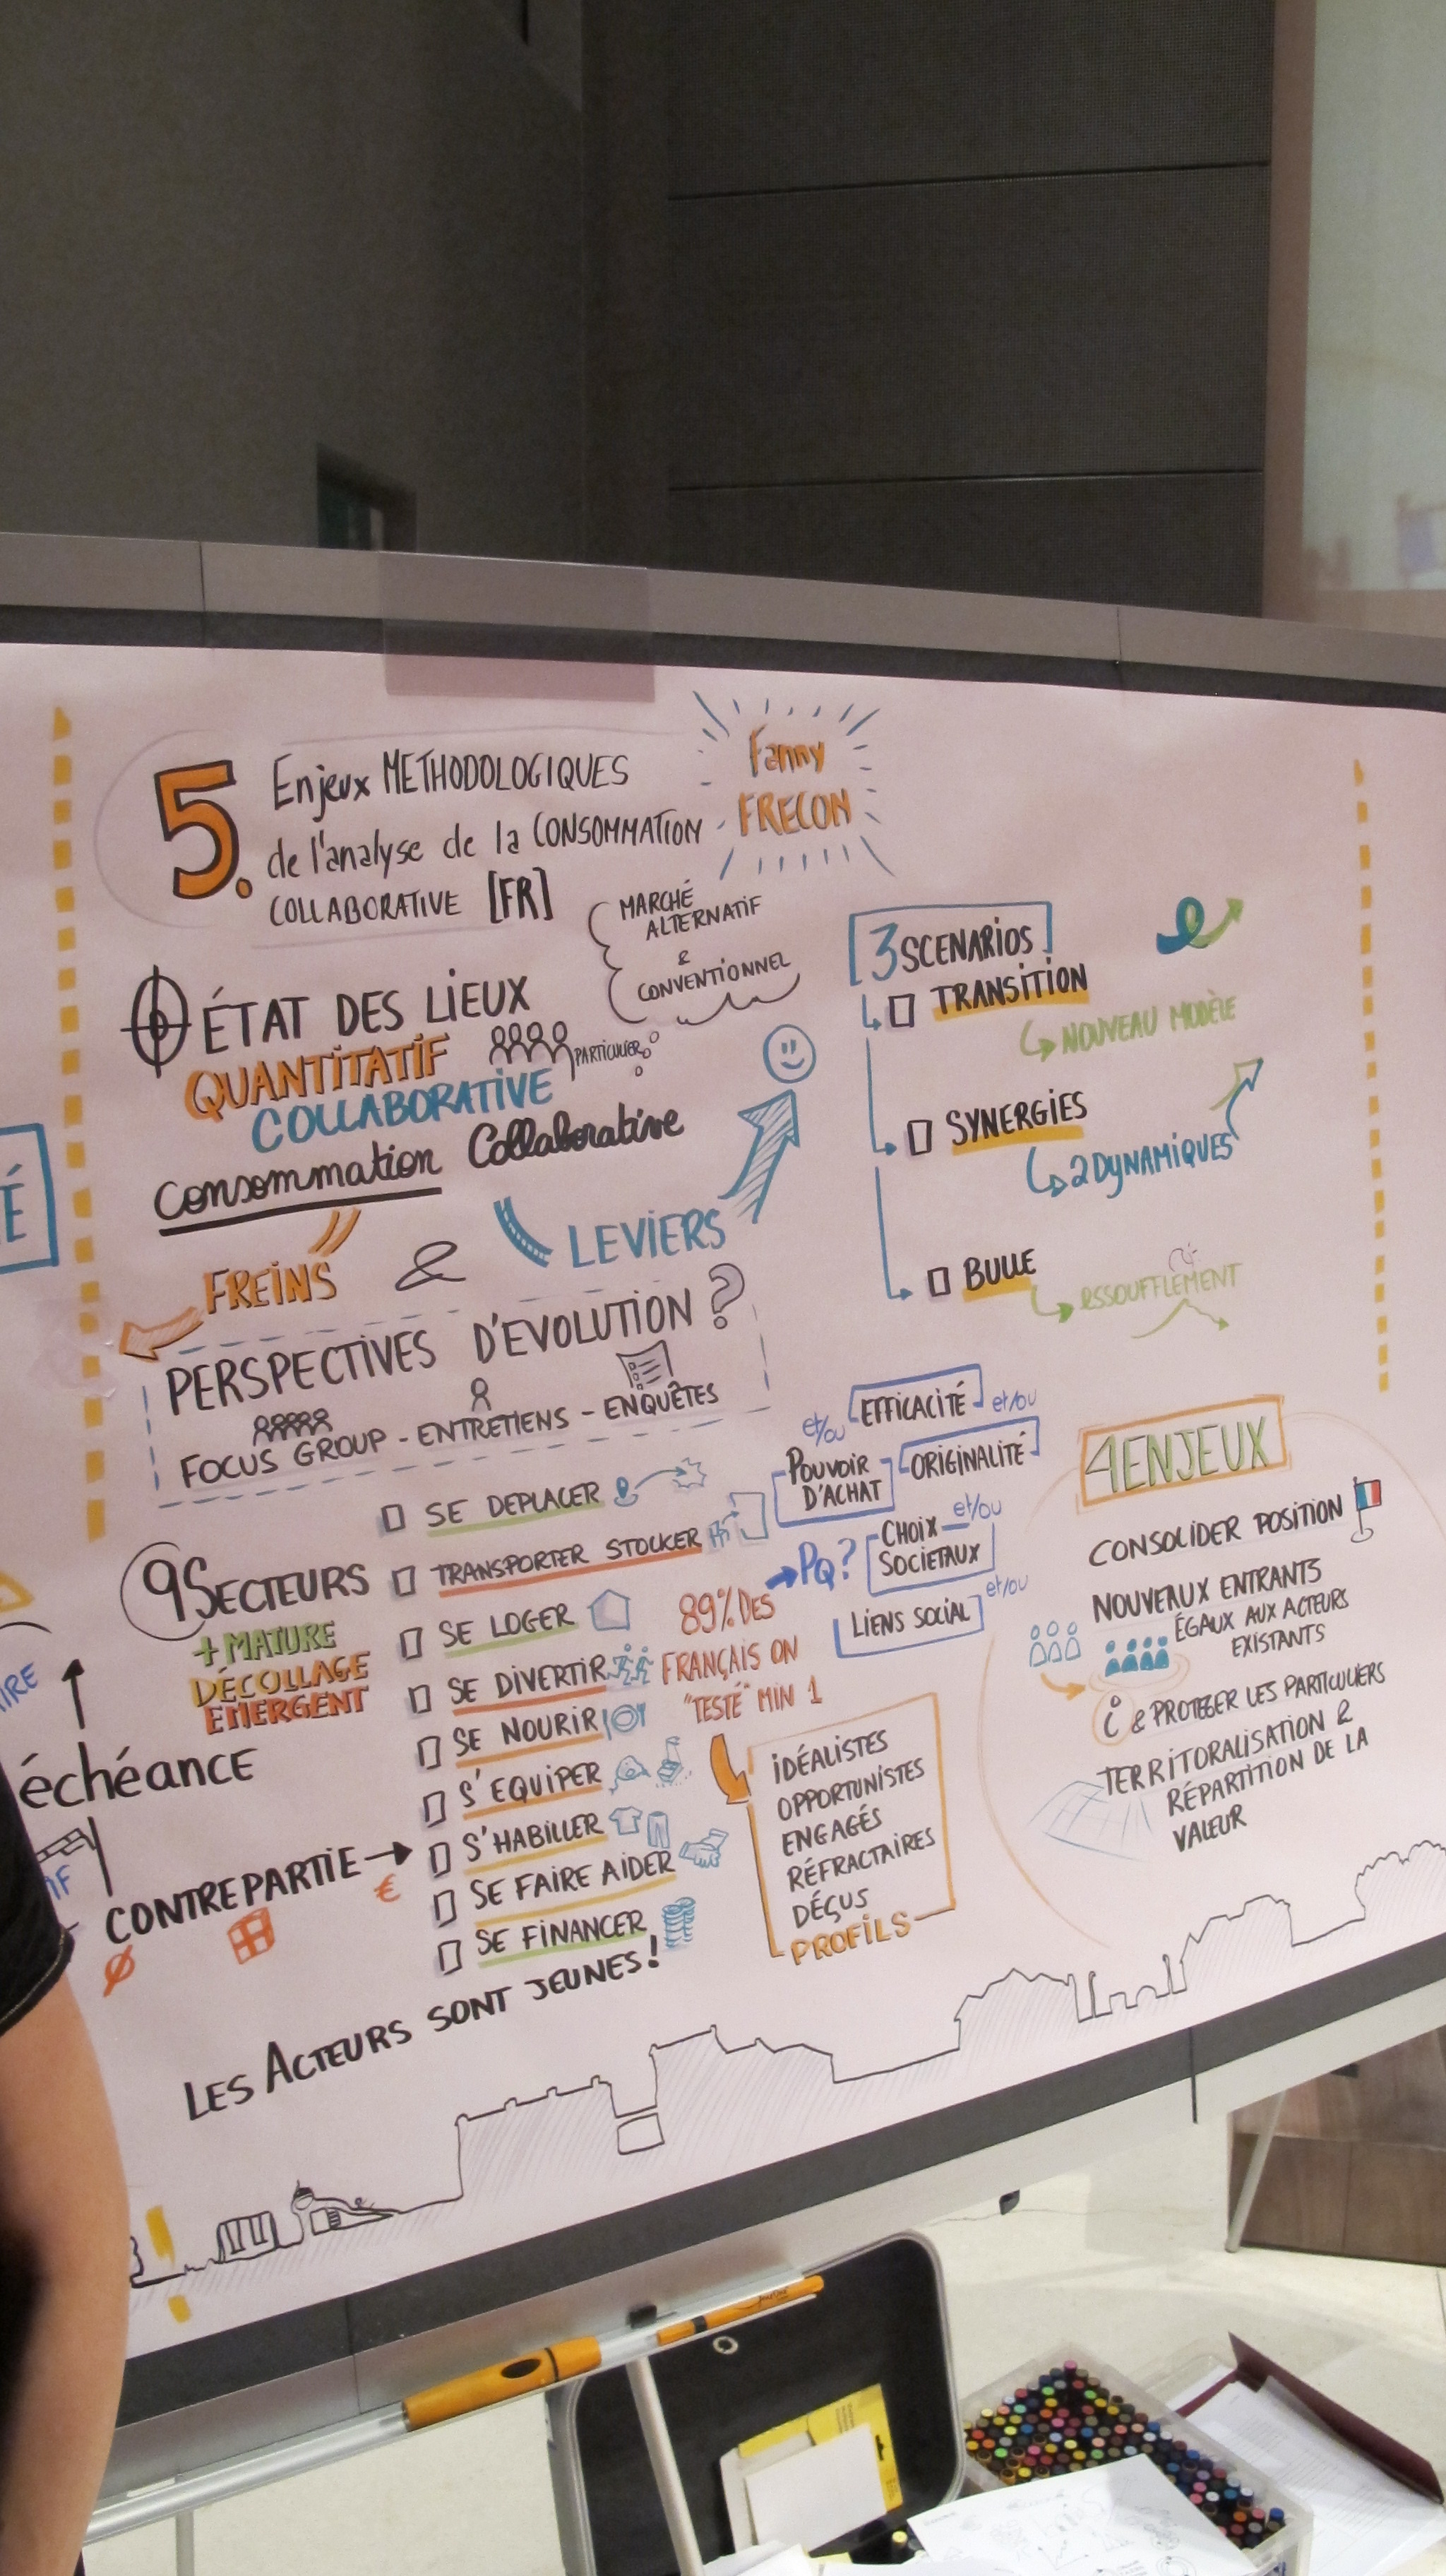 5.
Enjeux METHODOLOGIQUES
de l'analyse de la CONSOMMATION
COLLABORATIVE [FR]
Fanny
FRECON
ÉTAT DES LIEUX
QUANTITATIF
COLLABORATIVE
PARTICULIER
MARCHÉ
ALTERNATIF
&
CONVENTIONNEL
consommation Collaborative
FREINS & LEVIERS
PERSPECTIVES D'EVOLUTION ?
FOCUS GROUP - ENTRETIENS - ENQUÊTES
3 SCENARIOS
TRANSITION
NOUVEAU MODÈLE
SYNERGIES
2 DYNAMIQUES
BULLE
ESSOUFFLEMENT
9 SECTEURS
+ MATURE
DÉCOLLAGE
EMERGENT
SE DEPLACER
TRANSPORTER STOCKER
SE LOGER
SE DIVERTIR
SE NOURIR
S'EQUIPER
S'HABILLER
SE FAIRE AIDER
SE FINANCER
LES ACTEURS SONT JEUNES !
É
IRE
échéance
CONTREPARTIE
€
89% DES
FRANÇAIS ON
"TESTÉ" MIN 1
PQ?
et/ou
EFFICACITÉ
et/ou
POUVOIR
D'ACHAT
ORIGINALITÉ
et/ou
CHOIX
SOCIETAUX
et/ou
LIENS SOCIAL
IDÉALISTES
OPPORTUNISTES
ENGAGÉS
RÉFRACTAIRES
DÉÇUS
PROFILS
4 ENJEUX
CONSOLIDER POSITION
NOUVEAUX ENTRANTS
ÉGAUX AUX ACTEURS
EXISTANTS
i & PROTEGER LES PARTICULIERS
TERRITORALISATION &
RÉPARTITION DE LA
VALEUR